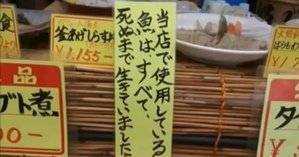 当店で使用している
魚はすべて、
死ぬまで生きていました
食
釜あげしらす
¥1,155-
品
ブト煮
00-
タ
¥